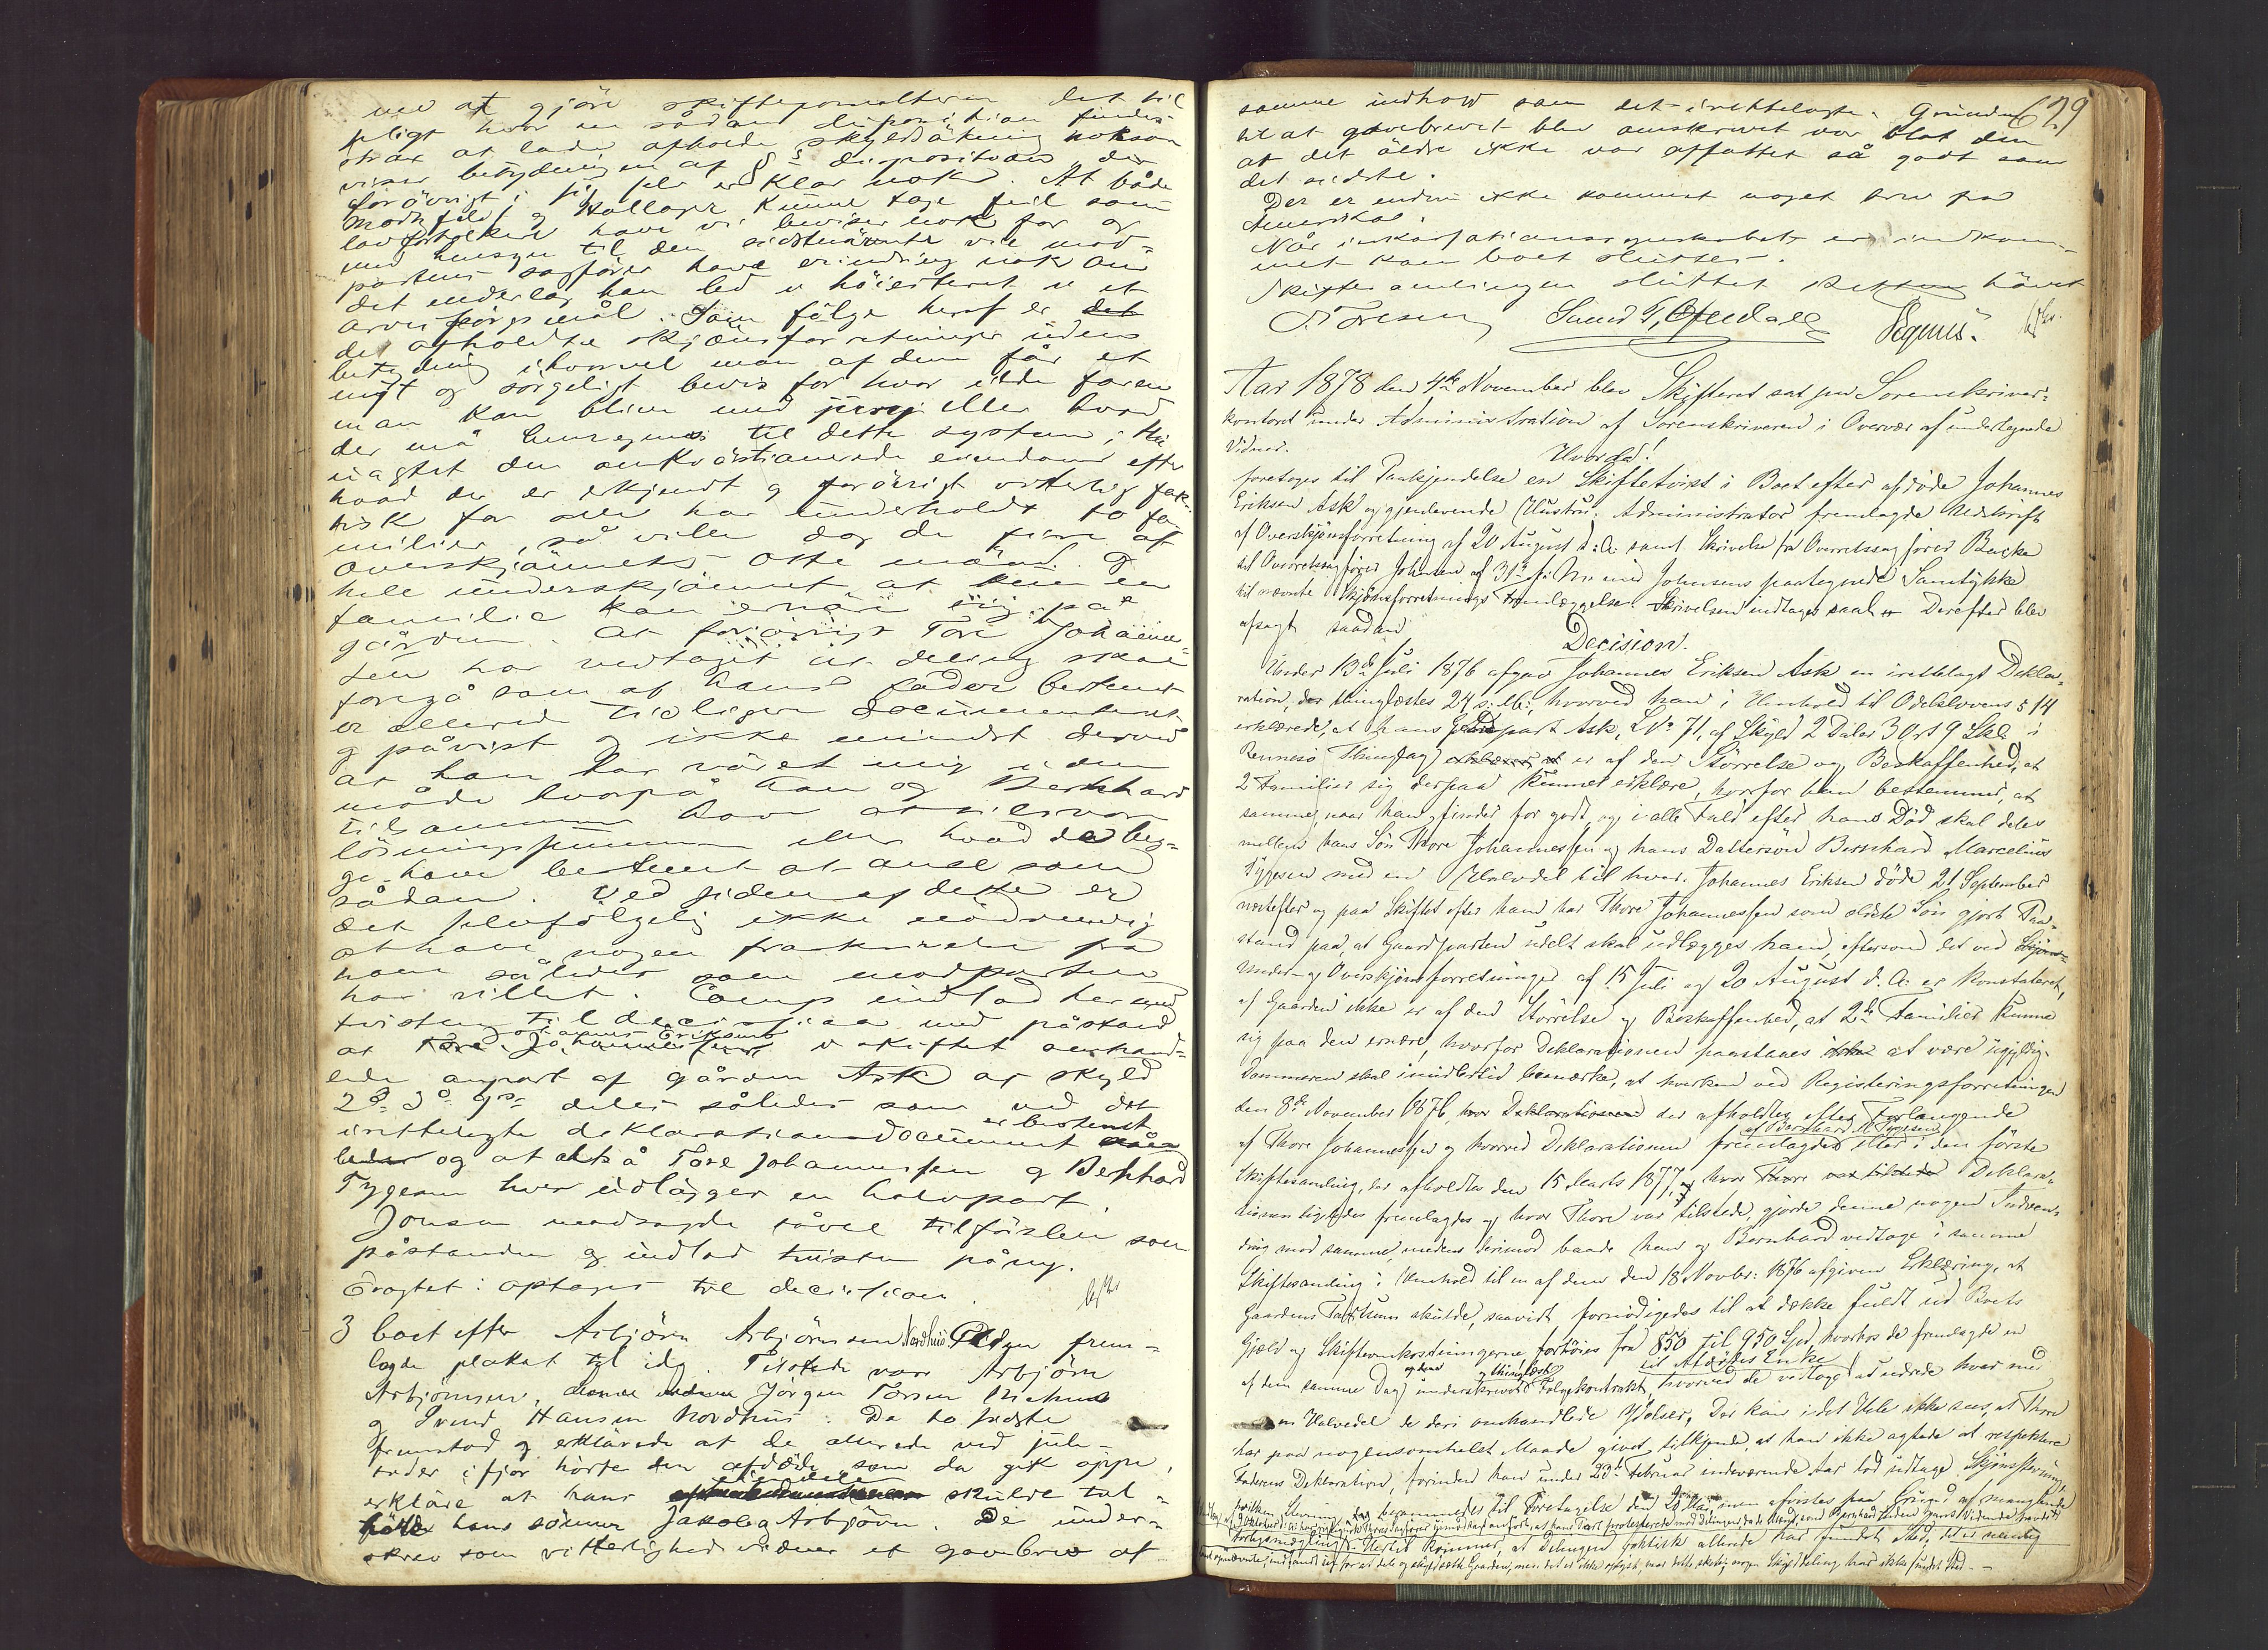 ved at gjöre skifteforvalteren det til
pligt hvor en sådan disposition findes
strax at lade afholde skyldsätning noksom
viser betydningen af §s disposition, der
forövrigt i sig selv er klar nok. At både
og Hallager kunne tage feil som
lovfortolkere have vi beviser nok for og
med hensyn til den sidstnävnte vil mod-
partens sagförer have erindring nok om
det nederlag han led i höiesteret i et
arvespörgsmål. Som fölge heraf er det
de afholdte skjönsforretninger uden
betydning ihvorvel man af dem får et
nyt og sörgeligt bevis for hvor ilde faren
man kan blive med jury eller hvad
der må henregnes til dette system; thi
uagtet den omkvästionerede eiendom efter
hvad der er erkjendt og forövrigt vitterlig fak-
tisk for alle har underholdt to fa-
milier, så ville dog de fire af
overskjönnets otte mänd og
hele underskjönnet, at kun en
familie kan ernäre sig på
gården. At forövrigt Tore Johannes-
sen har vedtaget at deling skal
foregå som af hans fader bestemt
er allerede tidligere documenteret
og påvist og ikke mindst derved
at han har väret enig i den
måde hvorpå han og Bernhard
tilsammen have at tilsvare
lösningssummen eller hvad de beg-
ge have bestemt at anse som
sådan. Ved siden af dette er
det selvfölgelig ikke nödvendig
at have nogen fraskrivelse fra
ham således som modparten
har villet. Comp indlod hermed
tvisten til decision med påstand
Johannes Eriksens
at Tore Johannessens i skiftet omhand-
lede anpart af gården Ask af skyld
2d 3o 9s deles således som ved det
er bestemt
irettelagte deklarationsdocument
og at altså Tore Johannessen og Bernhard
Tygesen hver udlägges en halvpart.
Jonsen modsagde såvel tilförslen som
påstanden og indlod tvisten påny.
Eragtet: optages til decision.
3 boet efter Asbjörn Asbjörnsen Nordhus. Olden frem-
lagde plakat til idag. Tilstede var Asbjörn
Asbjörnsen, Jörgen Torsen
og Svend Hansen Nordhus. De to sidste
fremstod og erklärede at de allerede ved jule-
tider ifjor hörte den afdöde, som da gik oppe,
erkläre at hans eiendele skulde til-
falde hans sönner Jakob og Asbjörn. De under-
skrev som vitterlighedsvidner et gavebrev af
629
samme indhold som det irettelagte. Grunden
til at gavebrevet blev omskrevet var blot den
at det äldre ikke var affattet så godt som
det sidste.
Der er endnu ikke kommet noget brev fra
Amerika.
Når inkassationsregnskabet er indkom-
met kan boet sluttes.
Skiftesamlingen sluttet Retten hävet
T. Toresen Svend T. Ofendall Segnus.
Aar 1878 den 4de November blev Skifteret sat paa Sorenskriver-
kontoret under Administration af Sorenskriveren i Overvær af undertegnede
Vidner.
Hvorda!
foretoges til Paakjendelse en Skiftetvist i Boet efter afdøde Johannes
Eriksen Ask og gjenlevende Hustru. Administrator fremlagde Udskrift
af Overskjønsforretning af 20 August d: A: samt Skrivelse fra Overretssagfører Backe
til Overretssagfører Johnsen af 31te f: M: med Johnsens paategnede Samtykke
til nævnte Skjønsforretnings Fremlæggelse. Skrivelsen indtages saal. Derefter blev
afsagt saadan
Decision.
Under 13de Juli 1876 afgav Johannes Eriksen Ask en irettelagt Dekla-
ration, der thinglæstes 24 s: M:, hvorved han i Henhold til Odelslovens § 14
erklærede, at hans Gaardpart Ask, L№ 71, af Skyld 2 Daler 3 Ort 9 Skl. i
Rennesø Thinglag er af den Størrelse og Beskaffenhed, at
2 Familier sig derpaa kunne ernære, hvorfor han bestemmer, at
samme, naar han finder for godt, og i alle Fald efter hans Død skal deles
mellem hans Søn Thore Johannessen og hans Dattersøn Bernhard Marcelius
Tygesen med en Halvdel til hver. Johannes Eriksen døde 21 September
næstefter og paa Skiftet efter ham har Thore Johannessen som eldste Søn gjort Paa-
stand paa, at Gaardparten udelt skal udlægges ham, eftersom det ved
Under- og Overskjønsforretninger af 15 Juli og 20 August d. A. er konstateret,
at Gaarden ikke er af den Størrelse og Beskaffenhed, at 2de Familier kunne
sig paa den ernære, hvorfor Deklarationen paastaaes at være ugyldig.
Dommeren skal imidlertid bemærke, at hverken ved Registeringsforretningen
den 8de November 1876, der afholdtes efter Forlangende
af Bernhard M. Tygesen
af Thore Johannessen og hvorved Deklarationen fremlagdes eller i den første
Skiftesamling, der afholdtes den 15 Marts 1877, hvor Deklara-
tionen ligeledes fremlagdes og hvor Thore var tilstede, gjorde denne nogen Indven-
ding mod samme, medens derimod baade han og Bernhard vedtoge i samme
Skiftesamling i Henhold til en af dem den 18 Novbr: 1876 afgiven Erklæring, at
Gaardens Taxtsum skulde, saavidt fornødigedes til at dække fuldt ud Boets
Gjæld og Skifteomkostningerne forhøies fra 850 til 950 Spd, hvorhos de fremlagde en
og thinglæst til Afdødes Enke
af dem samme Dag underskreven Folgekontrakt, hvorved de vedtoge at udrede hver med
en Halvdel de deri omhandlede Ydelser. Der kan i det Hele ikke sees, at Thore
har paa nogensomhelst Maade givet tilkjende, at han ikke agtede at respektere
Faderens Deklaration, forinden han under 23de Februar indeværende Aar lod udtage Skjønsstevning,
hvilken Stevning berammedes til Foretagelse den 20 Mai, men afvistes paa Grund af manglende
Forligsmægling. Hertil kommer, at Delingen faktisk allerede har fundet Sted, det er nemlig
for at dele og skyldsætte Gaarden, men det er ikke oplyst, naar dette skede, nogen Skylddeling har ikke fundet Sted.